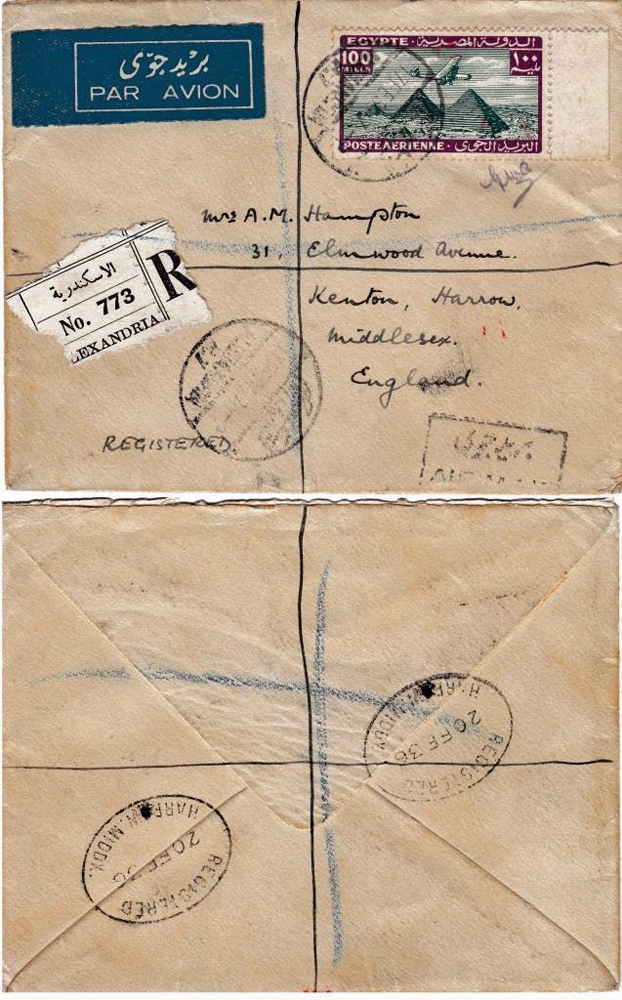 بريد جوى
PAR AVION
EGYPTE - الدولة المصرية
100
MILLS
١٠٠
مليمـ
POSTE AERIENNE - البريد الجوى
Mrs A.M. Hampton
31, Elmwood Avenue.
Kenton, Harrow,
Middlesex.
England.
الاسكندرية
R
No. 773
LEXANDRIA
REGISTERED
REGISTERED
20 FE 36
HARROW. MIDDX.
REGISTERED
20 FE 36
HARROW. MIDDX.